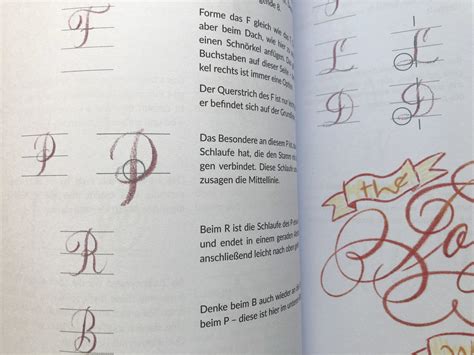 F
Forme das F gleich wie das T
aber beim Dach, wie hier zu
einen Schnörkel anfügen. Die
Buchstaben auf dieser Seite
kel rechts ist immer eine
Der Querstrich des F ist nur
er befindet sich auf der
P P
Das Besondere an diesem P ist
Schlaufe hat, die den Stamm mit
gen verbindet. Diese
zusagen die Mittellinie.
R
Beim R ist die Schlaufe des P
und endet in einem geraden
anschließend leicht nach oben
B
Denke beim B auch wieder an
beim P – diese ist hier im
L
L
D
D
the